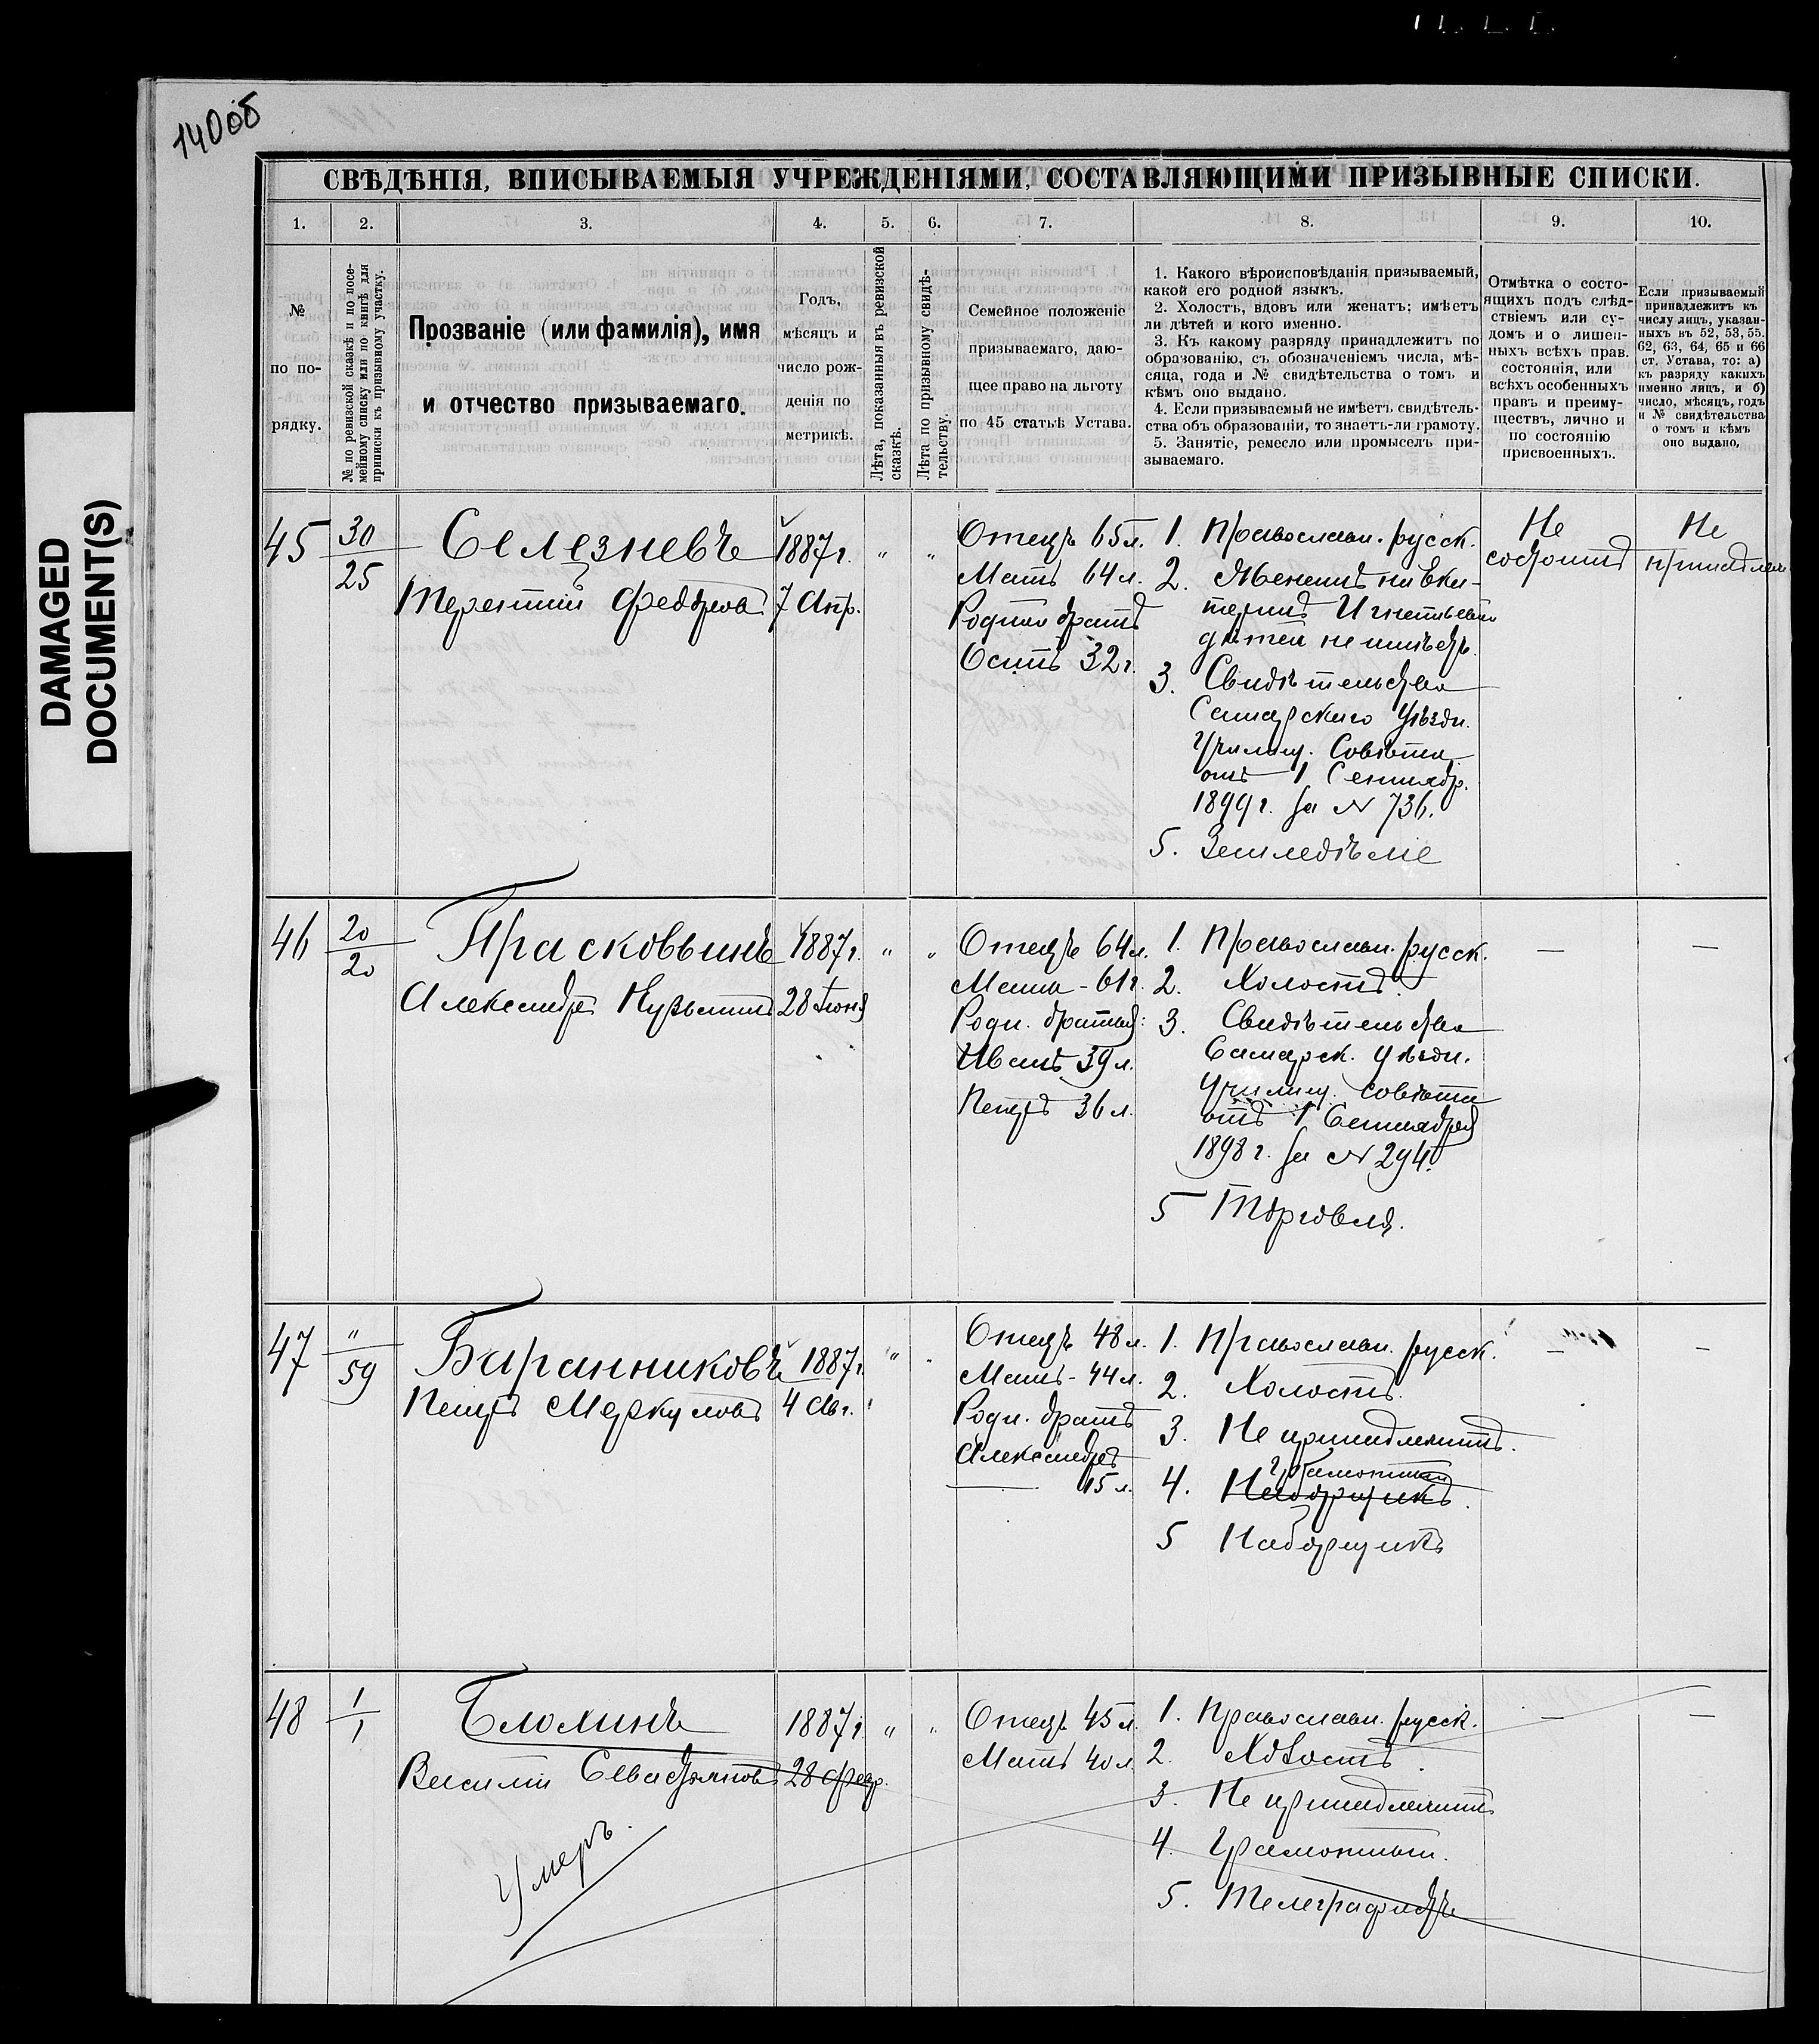 140об
DAMAGED
DOCUMENT(S)
СВѢДѢНІЯ, ВПИСЫВАЕМЫЯ УЧРЕЖДЕНІЯМИ, СОСТАВЛЯЮЩИМИ ПРИЗЫВНЫЕ СПИСКИ.
1. 2. 3. 4. 5. 6. 7. 8. 9. 10.
№
по по-
рядку.
№ по ревизской сказкѣ и по посе-
мейному списку или по книгѣ для
приписки къ призывному участку.
Прозваніе (или фамилія), имя
и отчество призываемаго.
Годъ,
мѣсяцъ и
число рож-
денія по
метрикѣ.
Лѣта, показанныя въ ревизской
сказкѣ.
Лѣта по призывному свидѣ-
тельству.
Семейное положеніе
призываемаго, даю-
щее право на льготу
по 45 статьѣ Устава.
1. Какого вѣроисповѣданія призываемый,
какой его родной языкъ.
2. Холостъ, вдовъ или женатъ; имѣетъ
ли дѣтей и кого именно.
3. Къ какому разряду принадлежитъ по
образованію, съ обозначеніемъ числа, мѣ-
сяца, года и № свидѣтельства о томъ и
кѣмъ оно выдано.
4. Если призываемый не имѣетъ свидѣтель-
ства объ образованіи, то знаетъ-ли грамоту.
5. Занятіе, ремесло или промыселъ при-
зываемаго.
Отмѣтка о состо-
ящихъ подъ слѣд-
ствіемъ или су-
домъ и о лишен-
ныхъ всѣхъ прав.
состоянія, или
всѣхъ особенныхъ
правъ и преиму-
ществъ, лично и
по состоянію
присвоенныхъ.
Если призываемый
принадлежитъ къ
числу лицъ, указан-
ныхъ въ 52, 53, 55.
62, 63, 64, 65 и 66
ст. Устава, то: а)
къ разряду какихъ
именно лицъ, и б)
число, мѣсяцъ, годъ
и № свидѣтельства
о томъ и кѣмъ
оно выдано,
45
30
25
Селезневъ
Терентий Федоровъ
1887 г.
7 Апр.
" "
Отецъ 65 л.
Мать 64 л.
Родной братъ
Осипъ 32 г.
1. Православн. русск.
2. Женатъ на Ека-
терин Игнатьевой
дѣтей не имѣетъ.
3. Свидѣтельство
Самарскаго Уѣздн.
Училищ. Совѣта
отъ 1 Сентябр.
1899 г. за № 736.
5. Земледѣліе
Не
состоитъ
Не
принадлеж
46
20
20
Прасковьинъ
Александръ Кузьминъ
1887 г.
28 Іюня
" "
Отецъ 64 л.
Мать - 61 г.
Родн. братья:
Иванъ 39 л.
Петръ 36 л.
1. Православн. русск.
2. Холостъ.
3. Свидѣтельство
Самарск. Уѣздн.
Училищ. Совѣта
отъ 1 Сентября
1898 г. за № 294.
5 Торговля.
— —
47
"
59
Баранниковъ
Петръ Меркуловъ
1887 г.
4 Авг.
"
Отецъ 48 л.
Мать - 44 л.
Родн. братъ
Александръ
15 л.
1. Православн. русск.
2. Холостъ.
3. Не принадлежитъ.
грамотный
4. Наборщикъ.
5 Наборщикъ
— —
48
1
1
Блохинъ
Василий Севастьяновъ
1887 г.
28 Февр.
" "
Умеръ.
Отецъ 45 л.
Мать 40 л.
1. Православн. русск.
2. Холостъ.
3. Не принадлежитъ
4. Грамотный.
5. Телеграфистъ
— —